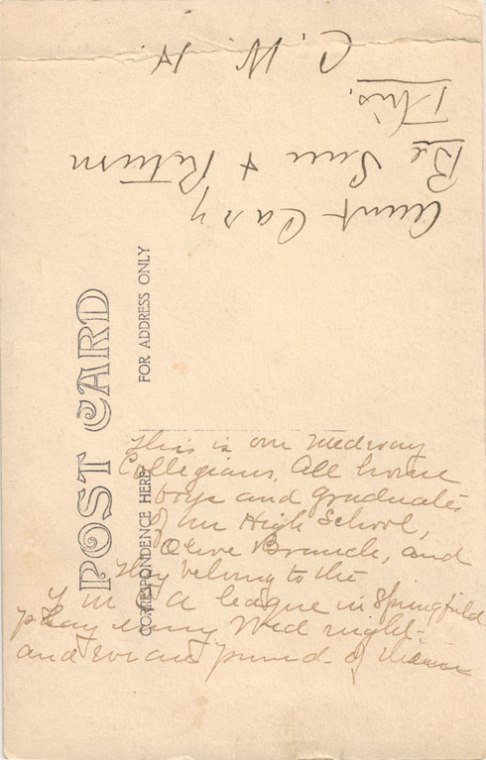 Aunt Casy
Be Sure & Return
This.
C. W. H.
POST CARD
CORRESPONDENCE HERE
FOR ADDRESS ONLY
This is our Medway
Collegians, All home
boys and graduates
of our High School,
Olive Branch, and
they belong to the
Y M C A league in Springfield
play every Wed night-
and we are proud of them